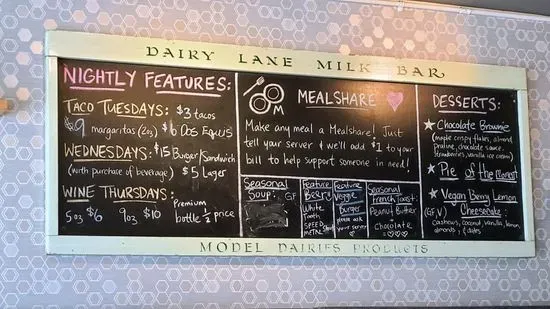 DAIRY LANE MILK BAR
NIGHTLY FEATURES:
TACO TUESDAYS: $3 tacos
$9 margaritas (2oz) $6 DOS EQUIS
WEDNESDAYS: $15 Burger/Sandwich
(with purchase of beverage) $5 Lager
WINE THURSDAYS:
5oz $6 9oz $10 Premium bottle ½ price
MEALSHARE
Make any meal a Mealshare! Just
tell your server & we'll add $1 to your
bill to help support someone in need!
Seasonal
Soup: GF
Feature
Beer:
White
Tooth
SPEED
METAL
Feature
Veggie
Burger
please ask
your server
Seasonal
French Toast:
Peanut Butter
Chocolate
DESSERTS:
Chocolate Brownie
(maple crispy flakes, almond
praline, chocolate sauce,
strawberries, vanilla ice cream)
Pie of the Moment
Vegan Berry Lemon
(GF, V) Cheesecake:
Cashews, coconut, vanilla, lemon,
almonds, & dates
MODEL DAIRIES PRODUCTS